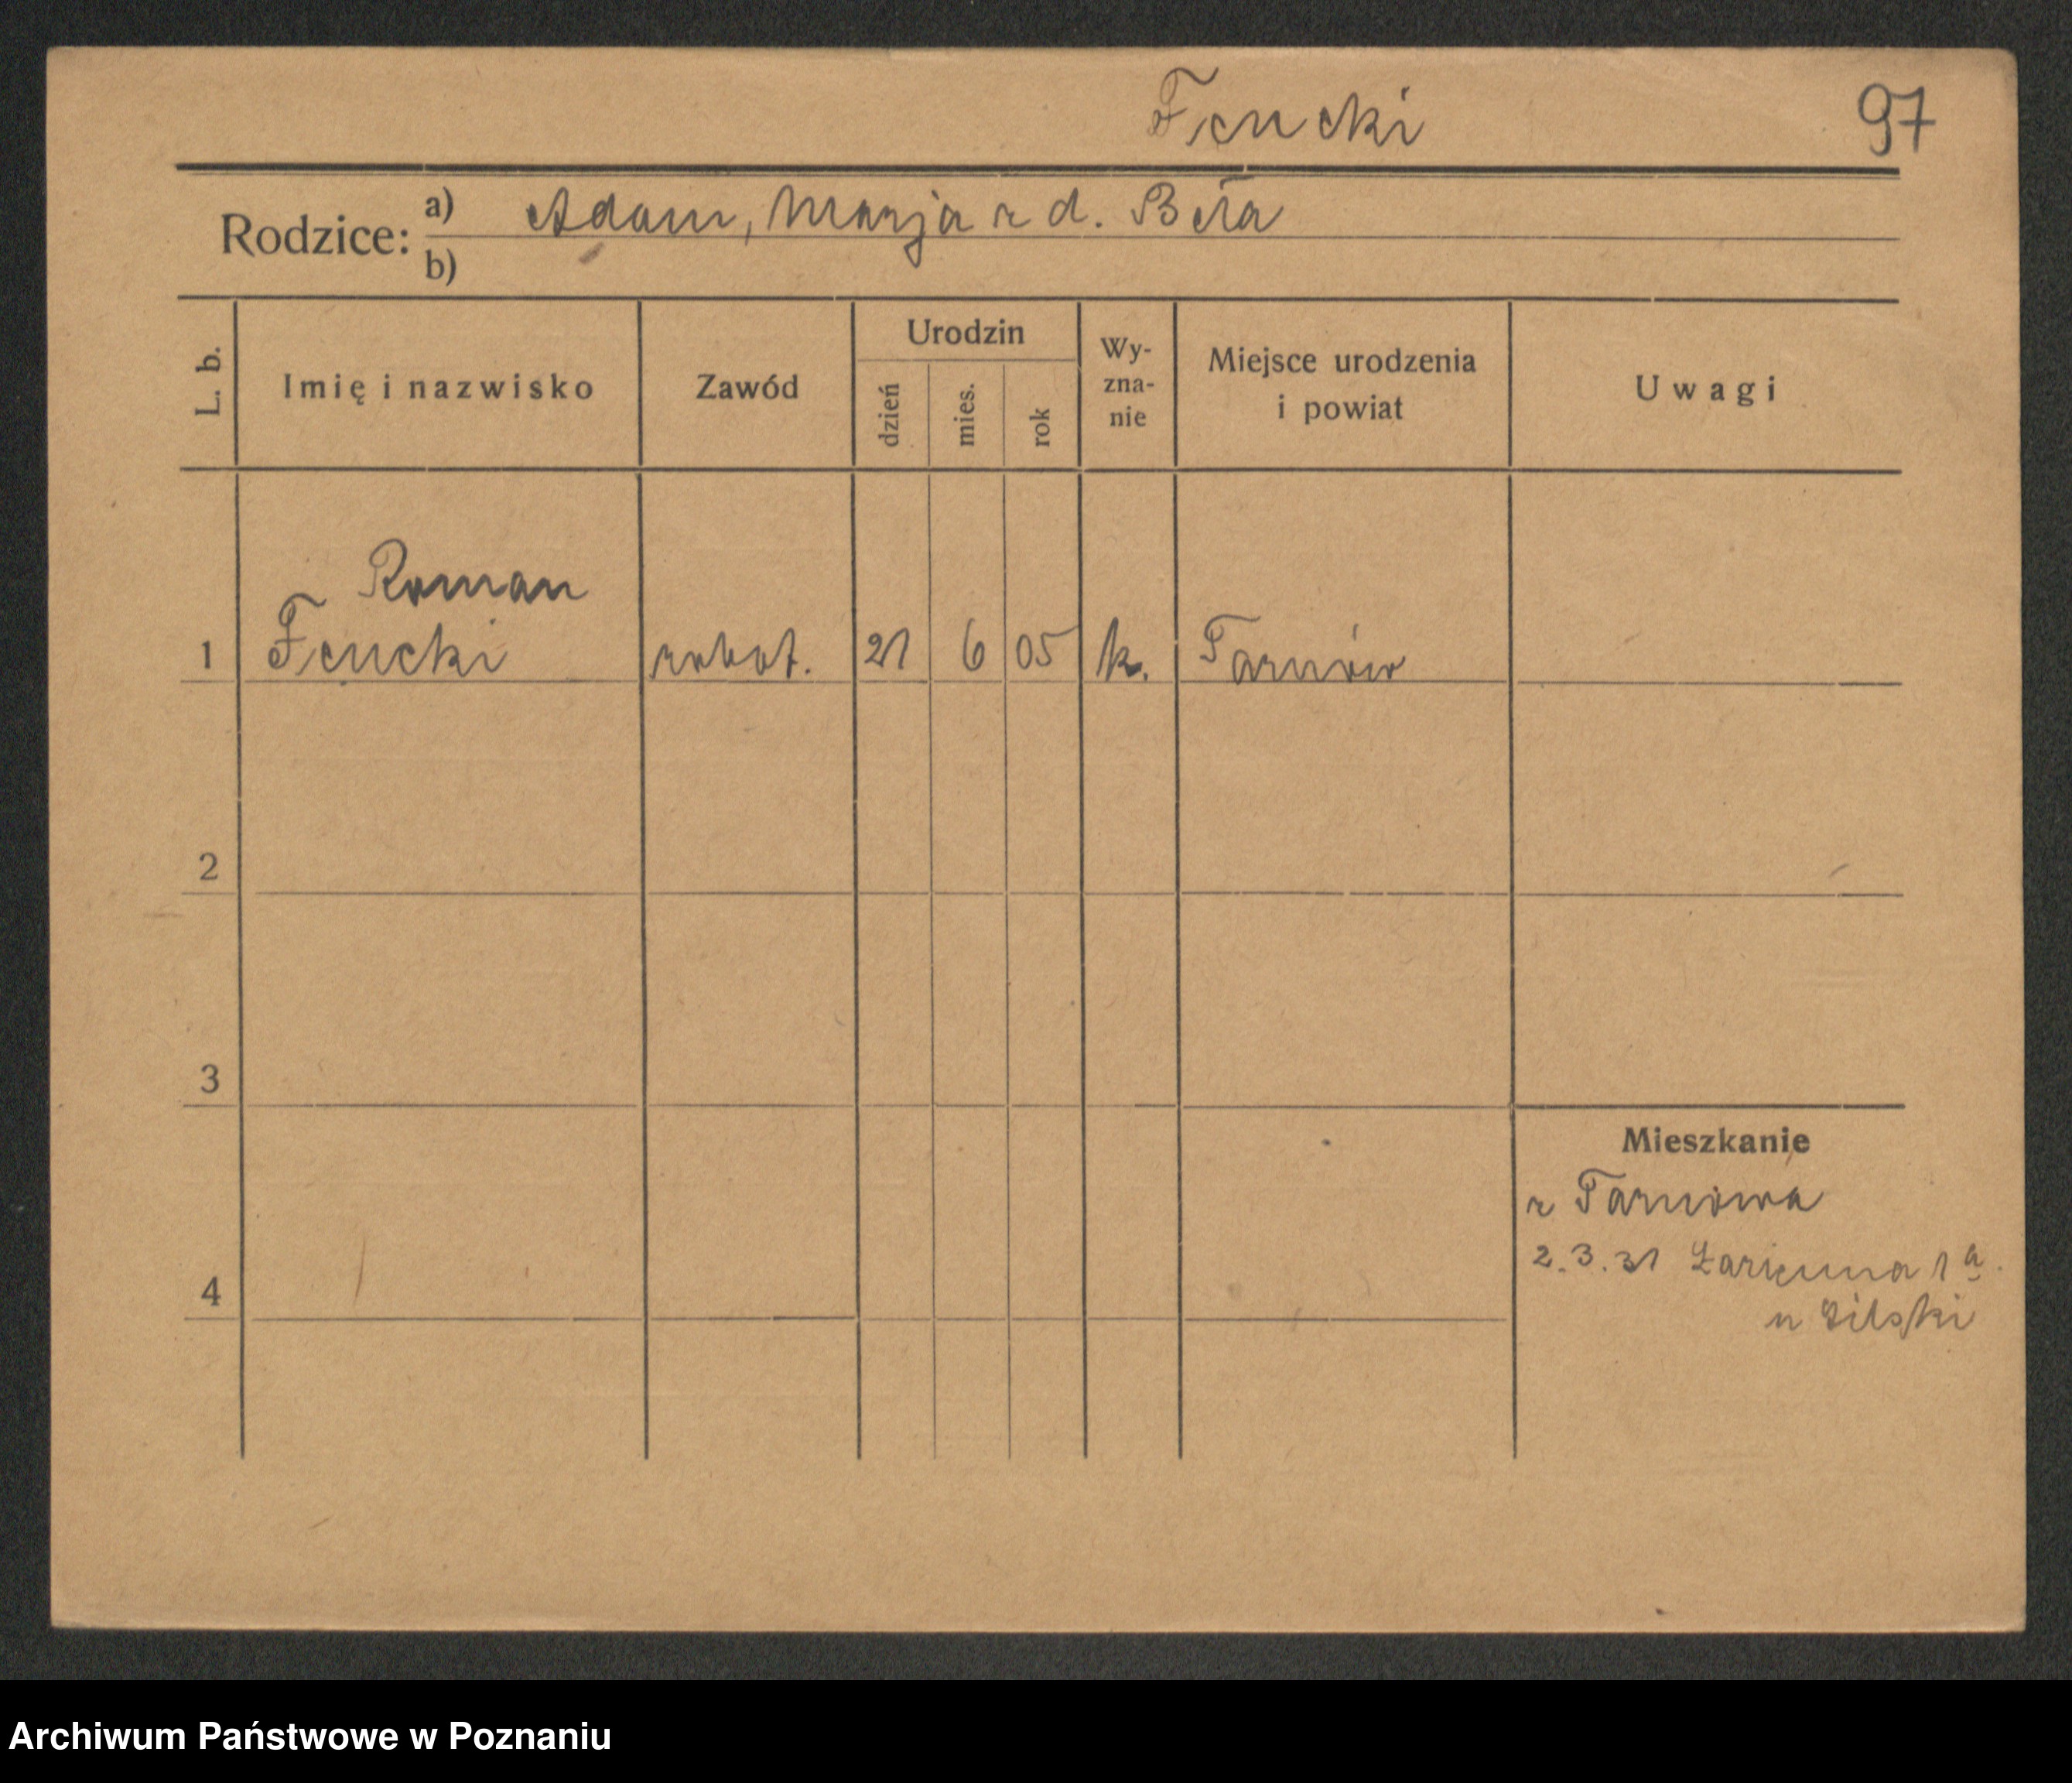 Fcucki
97
Rodzice:
a) Adam, Marja z d. Beła
b)
L. b.
Imię i nazwisko
Zawód
Urodzin
dzień
mies.
rok
Wy-
zna-
nie
Miejsce urodzenia
i powiat
Uwagi
Roman
1 Fcucki robot. 21 6 05 k. Tarnów
2
3
Mieszkanie
z Tarnowa
2.3.31 1a
4
u
Archiwum Państwowe w Poznaniu